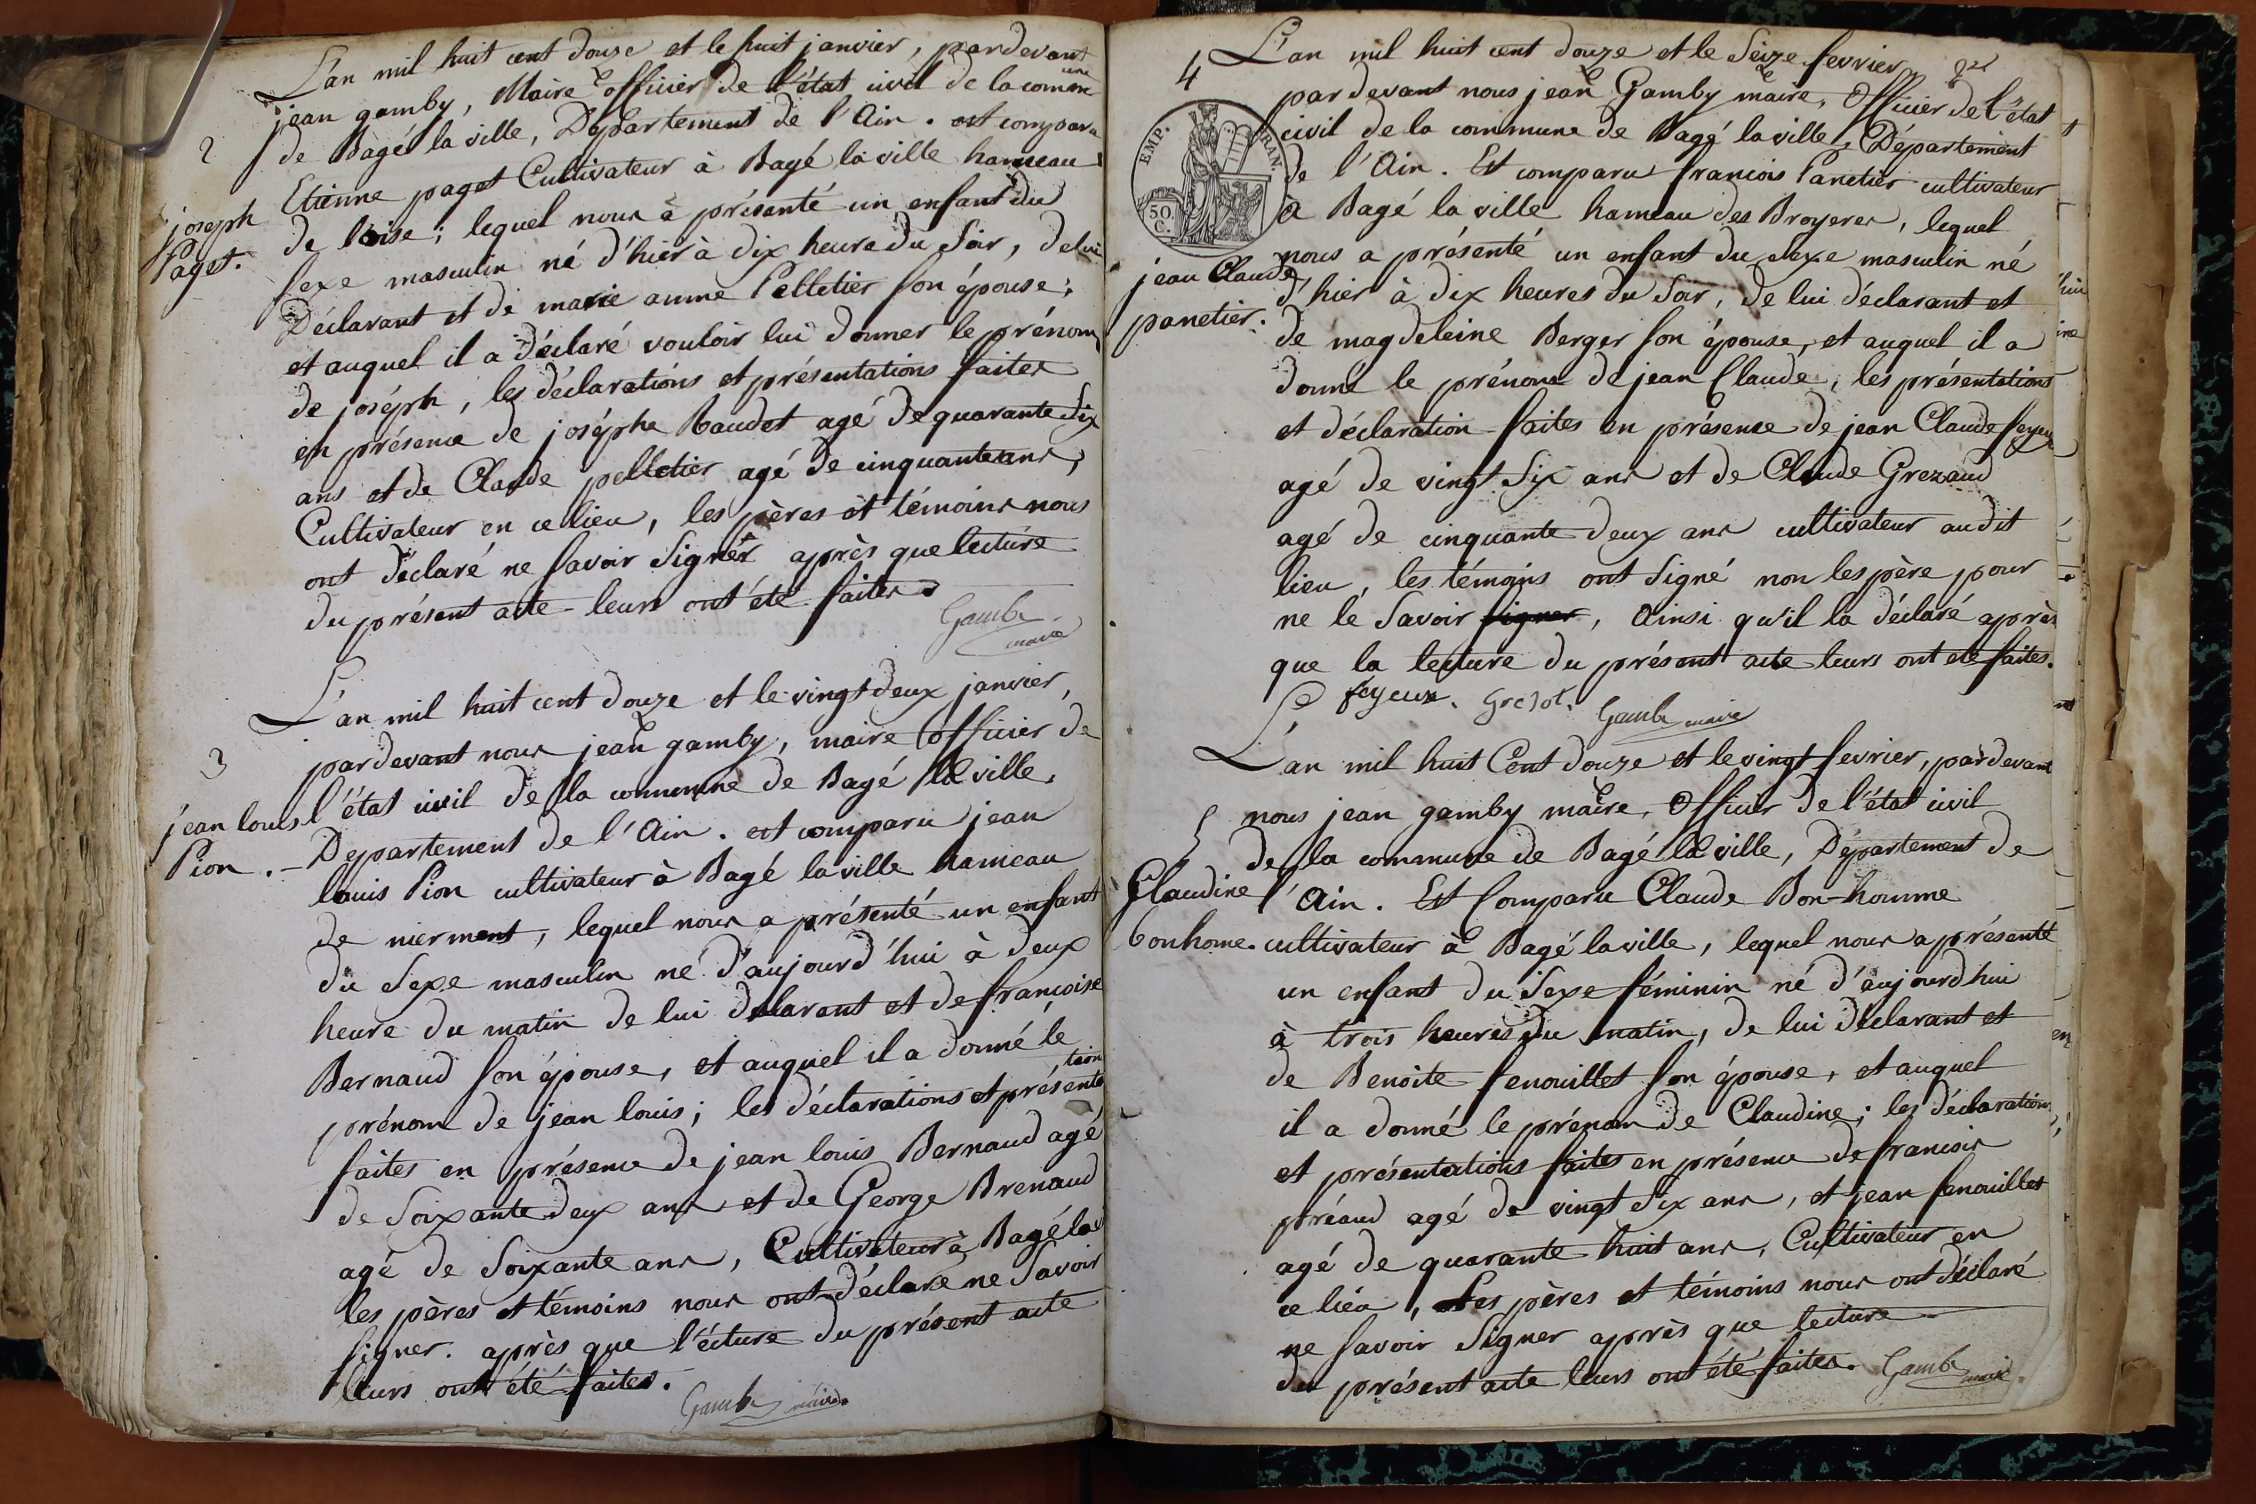 2
joseph
Paget.
L'an mil huit cent douse et le huit janvier, pardevant
jean gamby, Maire & officier de l'état civil de la commune
de Bagé la ville, Département de l'Ain. est comparu
Etienne paget Cultivateur à Bagé la ville hameau
de loise; lequel nous à présanté un enfant du
sexe masculin né d'hier à dix heure du Soir, de lui
Déclarant et de marie anne Pelletier son épouse;
et auquel il a déclaré vouloir lui donner le prénom
de joséph, les déclarations et présentations faites
en présence de joséphe Baudet agé de quarante Six
ans et de Claude pelletier agé de cinquante ans,
Cultivateur en ce lieu, les pères et témoins nous
ont déclaré ne savoir Signér après que lecture
du présent acte leurs ont été faites.
Gamby
maire
3
jean louis
Pion.
L'an mil huit cent douze et le vingt deux janvier,
pardevant nous jean gamby, maire & Officier de
l'état civil de la commune de Bagé la ville,
Département de l'Ain. est comparu jean
louis Pion cultivateur à Bagé la ville hameau
de nierment, lequel nous a présenté un enfant
du Sexe masculin né d'aujourd'hui à deux
heure du matin de lui déclarant et de françoise
Bernaud son épouse, et auquel il a donné le
prénom de jean louis; les déclarations et présentation
faites en présence de jean louis Bernaud agé
de Soixante deux ans et de George Brenaud
agé de Soixante ans, Cultivateur à Bagé la v
les pères et témoins nous ont déclaré ne Savoir
signer. après que l'écture du présent acte
leurs ont été faites.
Gamby maire
4
EMP. FRAN.
50. C.
jean Claude
panetier.
L'an mil huit cent douze et le Seize fevrier
pardevant nous jean Gamby maire, & Officier de l'état
civil de la commune de Bagé la ville, Département
de l'Ain. Est comparu francois Panetier cultivateur
a Bagé la ville hameau des Broyeres, lequel
nous a présenté un enfant du sexe masculin né
d'hier à dix heures du Soir, de lui déclarant et
de magdeleine Berger son épouse, et auquel il a
donné le prénom de jean Claude, les présentations
et déclaration faites en présence de jean Claude feyeux
agé de vingt Six ans et de Claude Grezaud
agé de cinquante deux ans cultivateur audit
lieu, les témoins ont Signé non les père pour
ne le Savoir signer, Ainsi qu'il la déclaré après
que la lecture du présent acte leurs ont été faites.
feyeux. Grezot. Gamby maire
5
Claudine
bonhome.
L'an mil huit Cent douze et le vingt fevrier, pardevant
nous jean gamby maire, & Officier de l'état civil
de la commune de Bagé la ville, Département de
l'Ain. Est Comparu Claude Bon-homme
cultivateur à Bagé la ville, lequel nous a présenté
un enfant du Sexe féminin né d'aujourd'hui
à trois heures du matin, de lui déclarant et
de Benoite fenouillet son épouse, et auquel
il a donné le prénom de Claudine; les déclarations
et présentations faites en présence de francois
préaud agé de vingt Six ans, et jean fenouillet
agé de quarante huit ans, Cultivateur en
ce liéu, Les pères et témoins nous ont déclaré
ne savoir Signer après que lecture
du présent acte leurs ont été faites. Gamby maire